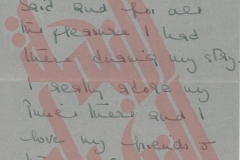 said and for all
the pleasure I had
there during my stay.
I really adore my
there and I
love my friends &